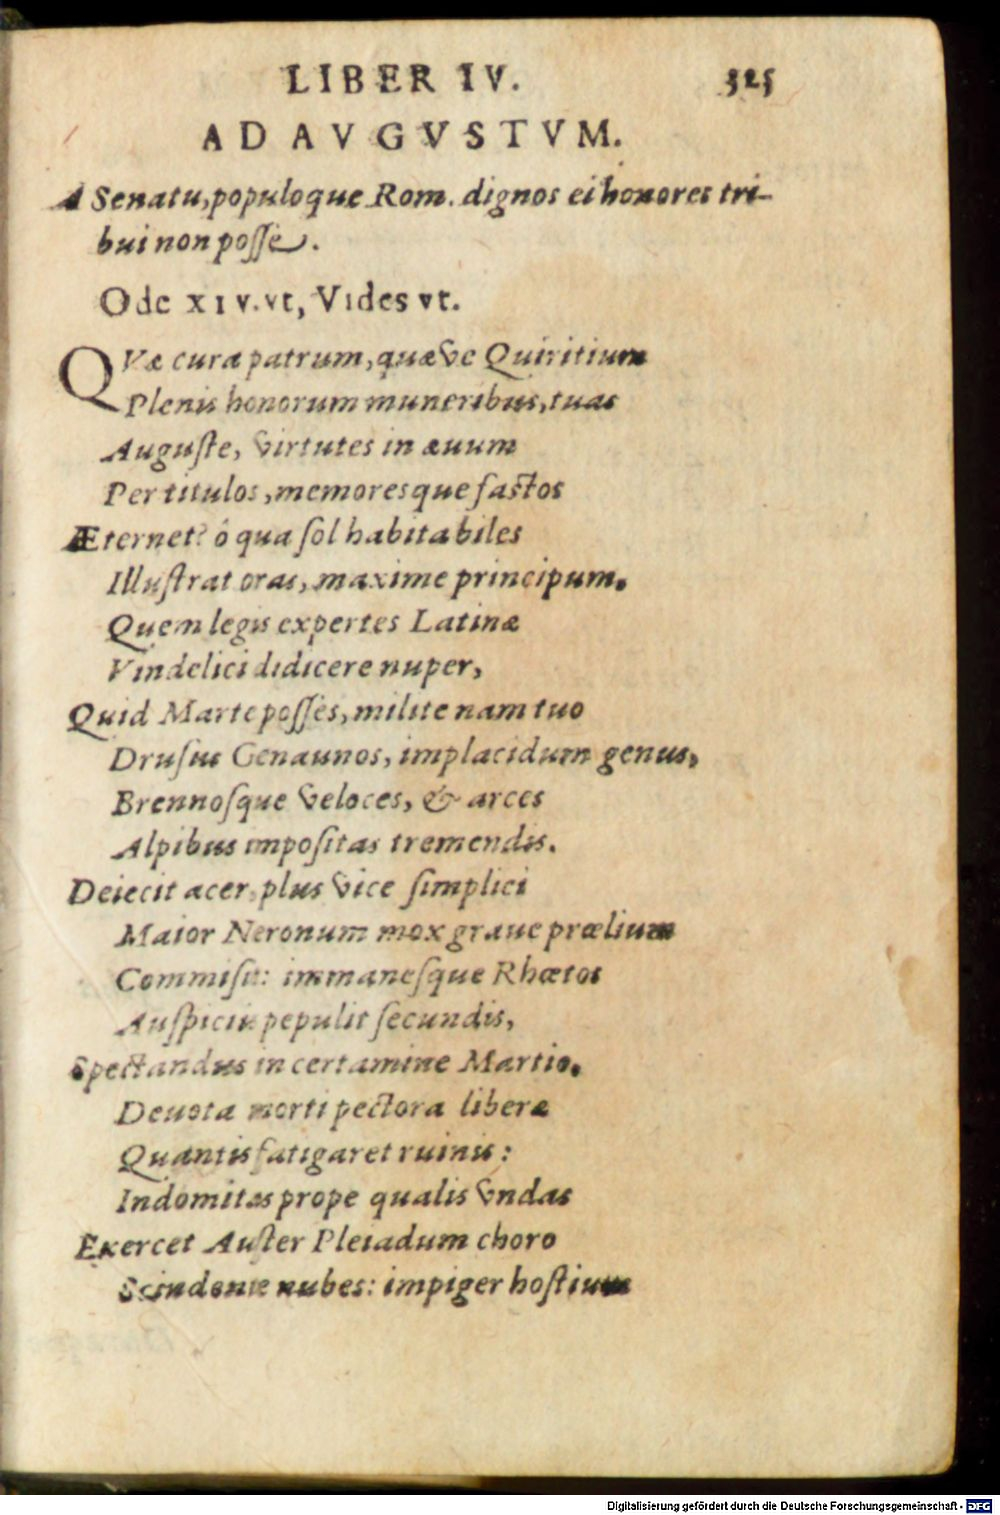 LIBER IV. 325
AD AVGVSTVM.
A Senatu, populoque Rom. dignos ei honores tri-
bui non posse.
Ode XIV. vt, Vides vt.
QVæ cura patrum, quæve Quiritium
Plenis honorum muneribus, tuas
Auguste, virtutes in æuum
Per titulos, memoresque fastos
Æternet? ô qua sol habitabiles
Illustrat oras, maxime principum.
Quem legis expertes Latinæ
Vindelici didicere nuper,
Quid Marte posses, milite nam tuo
Drusus Genaunos, implacidum genus,
Brennosque veloces, & arces
Alpibus impositas tremendis.
Deiecit acer, plus vice simplici
Maior Neronum mox graue prœlium
Commisit: immanesque Rhœtos
Auspiciis pepulit secundis,
Spectandus in certamine Martio.
Deuota morti pectora liberæ
Quantis fatigaret ruinis:
Indomitas prope qualis vndas
Exercet Auster Pleiadum choro
Scindente nubes: impiger hostium
Digitalisierung gefördert durch die Deutsche Forschungsgemeinschaft - DFG